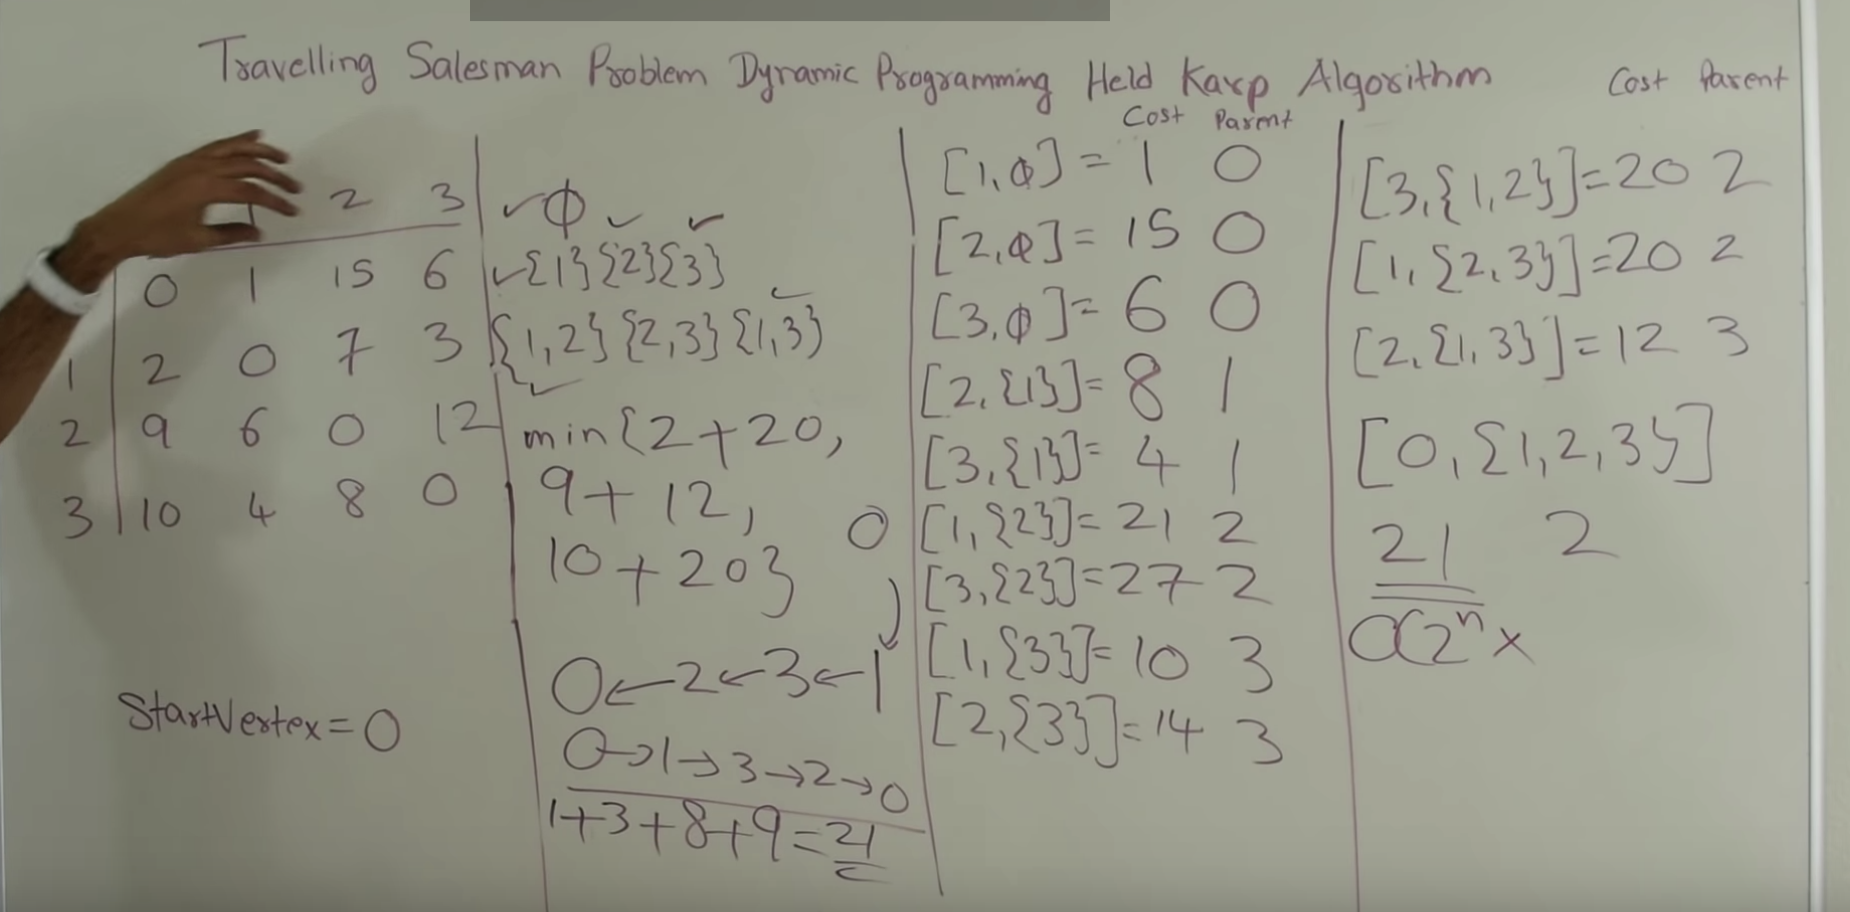 Travelling Salesman Problem Dynamic Programming Held Karp Algorithm
2 3
0 1 15 6
1 2 0 7 3
2 9 6 0 12
3 10 4 8 0
StartVertex = 0
✓ϕ ✓ ✓
✓{1} {2} {3}
{1,2} {2,3} {1,3}
min{2+20,
9+12,
10+20}
0
0←2←3←1
0→1→3→2→0
1+3+8+9=21
Cost Parent
[1,ϕ] = 1 0
[2,ϕ] = 15 0
[3,ϕ] = 6 0
[2,{1}] = 8 1
[3,{1}] = 4 1
[1,{2}] = 21 2
[3,{2}] = 27 2
[1,{3}] = 10 3
[2,{3}] = 14 3
Cost Parent
[3,{1,2}] = 20 2
[1,{2,3}] = 20 2
[2,{1,3}] = 12 3
[0,{1,2,3}]
21 2
O(2ⁿ x